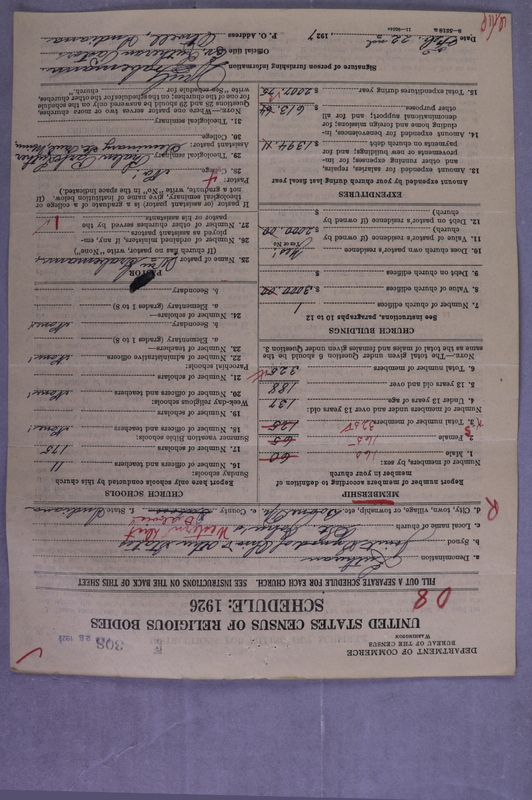 DEPARTMENT OF COMMERCE
BUREAU OF THE CENSUS
WASHINGTON
308
UNITED STATES CENSUS OF RELIGIOUS BODIES
SCHEDULE: 1926
FILL OUT A SEPARATE SCHEDULE FOR EACH CHURCH. SEE INSTRUCTIONS ON THE BACK OF THIS SHEET
a. Denomination Lutheran
b. Synod
c. Local name of church St.
d. City, town, village, or township, etc. e. County f. State Indiana
MEMBERSHIP
Report number of members according to definition of member in your church
Number of members, by sex:
1. Male 60 160
2. Female 65 165
3. Total number of members 125 325
Number of members under and over 13 years old:
4. Under 13 years of age 137
5. 13 years old and over 188
6. Total number of members 325
NOTE.—The total given under Question 6 should be the same as the total of males and females given under Question 3.
CHURCH BUILDINGS
See instructions, paragraphs 10 to 12
7. Number of church edifices 1
8. Value of church edifices $ 3000.00
9. Debt on church edifices $
10. Does church own pastor's residence Yes
(Yes or No)
11. Value of pastor's residence (if owned by church) $ 2000.00
12. Debt on pastor's residence (if owned by church) $
EXPENDITURES
Amount expended by your church during last fiscal year
13. Amount expended for salaries, repairs, and other running expenses; for improvements or new building; and for payments on church debt $ 1394.11
14. Amount expended for benevolences, including home and foreign missions; for denominational support; and for all other purposes $ 613.64
15. Total expenditures during year $ 2007.75
CHURCH SCHOOLS
Report here only schools conducted by this church
Sunday schools:
16. Number of officers and teachers 11
17. Number of scholars 175
Summer vacation Bible schools:
18. Number of officers and teachers None
19. Number of scholars
Week-day religious schools:
20. Number of officers and teachers None
21. Number of scholars
Parochial schools:
22. Number of administrative officers None
23. Number of teachers—
a. Elementary (grades 1 to 8)
b. Secondary None
24. Number of scholars—
a. Elementary (grades 1 to 8)
b. Secondary
PASTOR
25. Name of pastor
(If church has no pastor, write "None")
26. Number of ordained ministers, if any, employed as assistants
27. Number of other churches served by the pastor or his assistants 1
If pastor (or assistant pastor) is a graduate of a college or theological seminary, give name of institution below. (If not a graduate, write "No" in the space indicated.)
Pastor:
28. College No
29. Theological Seminary
Assistant pastor:
30. College
31. Theological Seminary
NOTE.—Where one pastor serves two or more churches, Questions 25 and 29 should be answered only on the schedule for one of the churches; on the schedules for the other churches, write "See schedule for church."
Signature of person furnishing information
Official title Ev. Lutheran Pastor
P. O. Address Indiana
Date Feb. 22 nd, 1927